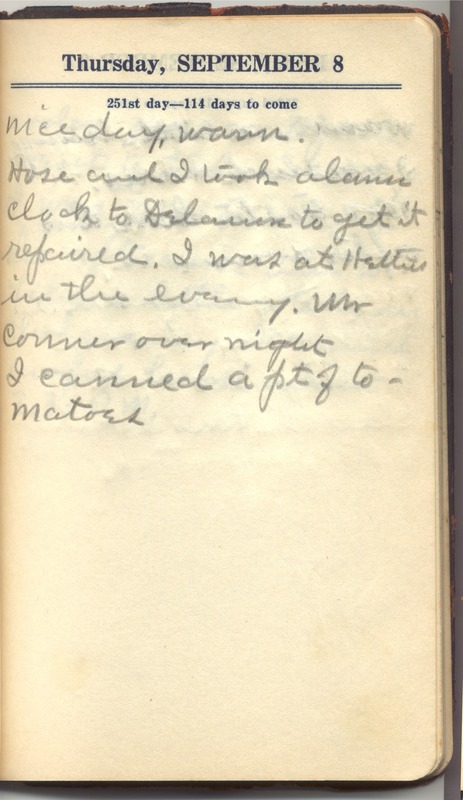 Thursday, SEPTEMBER 8
251st day—114 days to come
Nice day, warm.
Hose and I took alarm
clock to Delaware to get it
repaired. I was at Hetties
in the evening. Mr
Conner over night
I canned a pt of to-
matoes